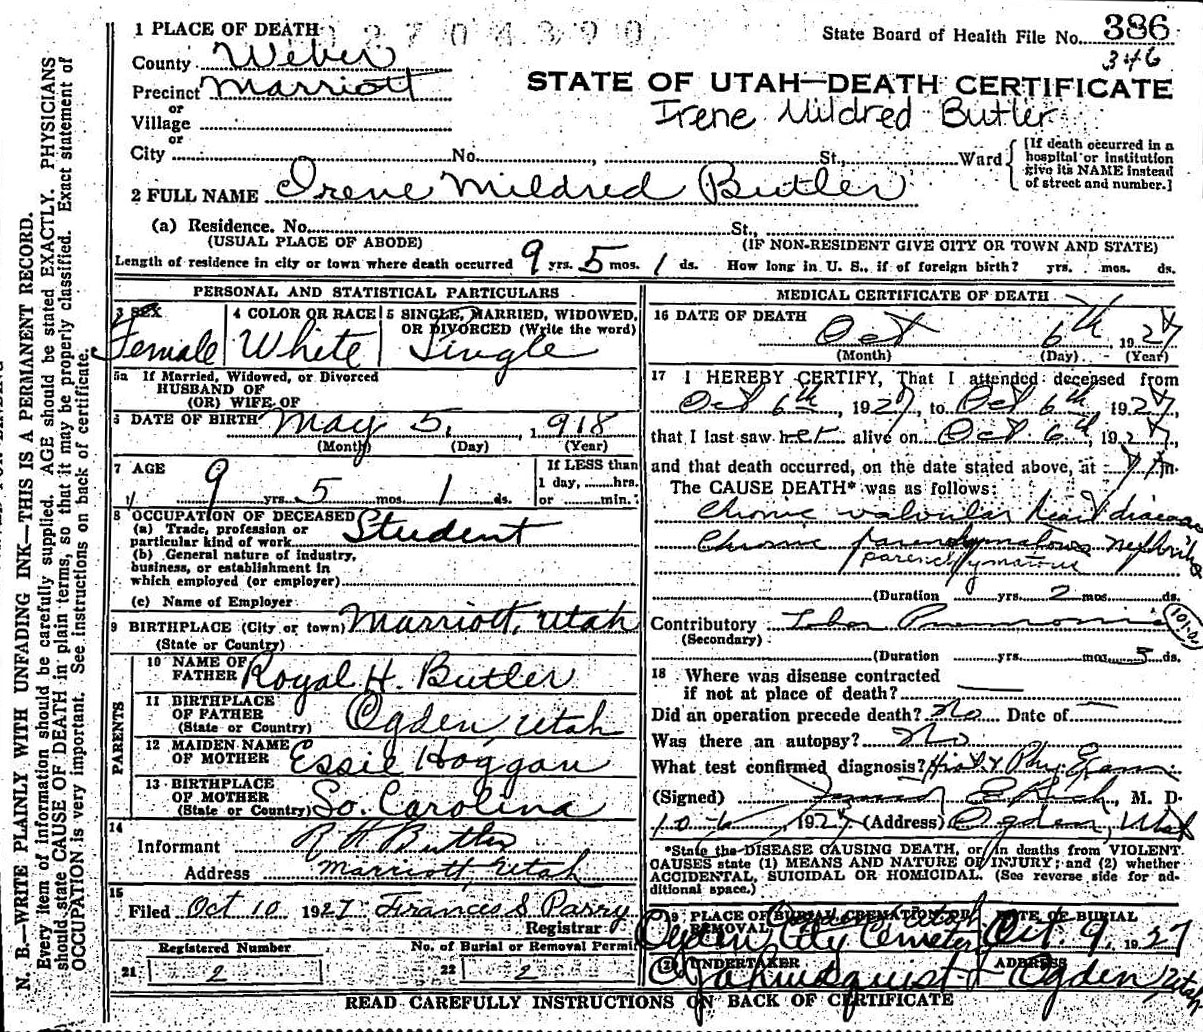 1 PLACE OF DEATH
State Board of Health File No. 386
346
County Weber
Precinct Marriott
STATE OF UTAH—DEATH CERTIFICATE
or
Irene Mildred Butler
Village
or
City No. , St., Ward
[If death occurred in a hospital or institution give its NAME instead of street and number.]
2 FULL NAME Irene Mildred Butler
(a) Residence. No. St.,
(USUAL PLACE OF ABODE) (IF NON-RESIDENT GIVE CITY OR TOWN AND STATE)
Length of residence in city or town where death occurred 9 yrs. 5 mos. 1 ds. How long in U. S., if of foreign birth? yrs. mos. ds.
PERSONAL AND STATISTICAL PARTICULARS
3 SEX
Female
4 COLOR OR RACE
White
5 SINGLE, MARRIED, WIDOWED,
OR DIVORCED (Write the word)
Single
5a If Married, Widowed, or Divorced
HUSBAND OF
(OR) WIFE OF
6 DATE OF BIRTH May 5, 1918
(Month) (Day) (Year)
7 AGE
9 yrs. 5 mos. 1 ds.
If LESS than
1 day, hrs.
or min.
8 OCCUPATION OF DECEASED
(a) Trade, profession or
particular kind of work Student
(b) General nature of industry,
business, or establishment in
which employed (or employer)
(c) Name of Employer
9 BIRTHPLACE (City or town) Marriott, Utah
(State or Country)
PARENTS
10 NAME OF
FATHER Royal H. Butler
11 BIRTHPLACE
OF FATHER
(State or Country) Ogden, Utah
12 MAIDEN NAME
OF MOTHER Essie Hoggan
13 BIRTHPLACE
OF MOTHER
(State or Country) So. Carolina
14
Informant R H Butler
Address Marriott, Utah
15
Filed Oct 10 1927 Frances S. Parry
Registrar
Registered Number No. of Burial or Removal Permit
21 2 22 2
MEDICAL CERTIFICATE OF DEATH
16 DATE OF DEATH
Oct 6th, 1927
(Month) (Day) (Year)
17 I HEREBY CERTIFY, That I attended deceased from
Oct 6th, 1927, to Oct 6th, 1927,
that I last saw her alive on Oct 6th, 1927,
and that death occurred, on the date stated above, at m.
The CAUSE DEATH* was as follows:
Chronic valvular heart disease
Chronic parenchymatous nephritis
parenchymatous
(Duration yrs. 2 mos. ds.
Contributory Lobar Pneumonia
(Secondary)
(Duration yrs. mos. 5 ds.
18 Where was disease contracted
if not at place of death?
Did an operation precede death? No Date of
Was there an autopsy? No
What test confirmed diagnosis? Hist & Phy Exam
(Signed) E Rich, M. D.
10-6, 1927 (Address) Ogden, Utah
*State the DISEASE CAUSING DEATH, or, in deaths from VIOLENT
CAUSES state (1) MEANS AND NATURE OF INJURY; and (2) whether
ACCIDENTAL, SUICIDAL OR HOMICIDAL. (See reverse side for ad-
ditional space.)
19 PLACE OF BURIAL, CREMATION OR
REMOVAL
Ogden City Cemetery
DATE OF BURIAL
Oct. 9, 1927
20 UNDERTAKER
Lindquist
ADDRESS
Ogden Utah
READ CAREFULLY INSTRUCTIONS ON BACK OF CERTIFICATE
N. B.—WRITE PLAINLY WITH UNFADING INK—THIS IS A PERMANENT RECORD.
Every item of information should be carefully supplied. AGE should be stated EXACTLY. PHYSICIANS
should state CAUSE OF DEATH in plain terms, so that it may be properly classified. Exact statement of
OCCUPATION is very important. See instructions on back of certificate.